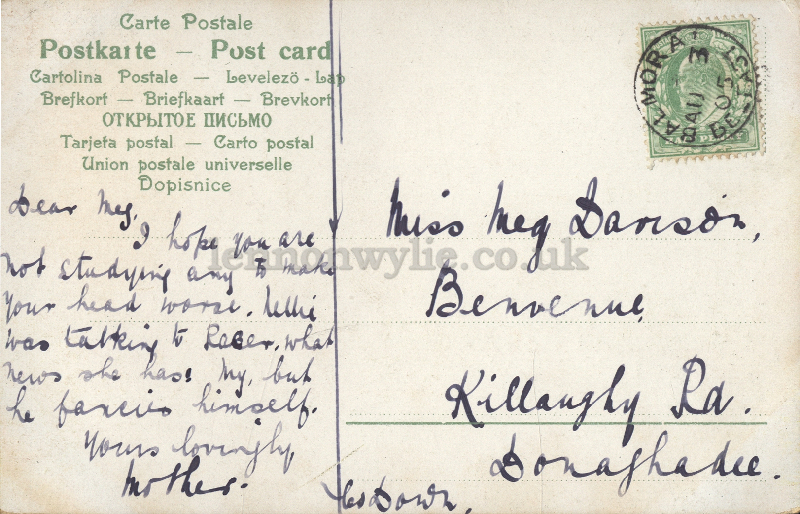 Carte Postale
Postkarte — Post card
Cartolina Postale — Levelező-Lap
Brefkort — Briefkaart — Brevkort
ОТКРЫТОЕ ПИСЬМО
Tarjeta postal — Carto postal
Union postale universelle
Dopisnice
Dear Meg,
I hope you are
not studying any to make
your head worse. Nellie
was talking to , what
news she has! My, but
he fancies himself.
Yours lovingly,
Mother.
BALMORAL
BELFAST
AU 3
05
Miss Meg Davison,
Benvenue,
Killaughy Rd.
Donaghadee.
Co Down.
lennonwylie.co.uk